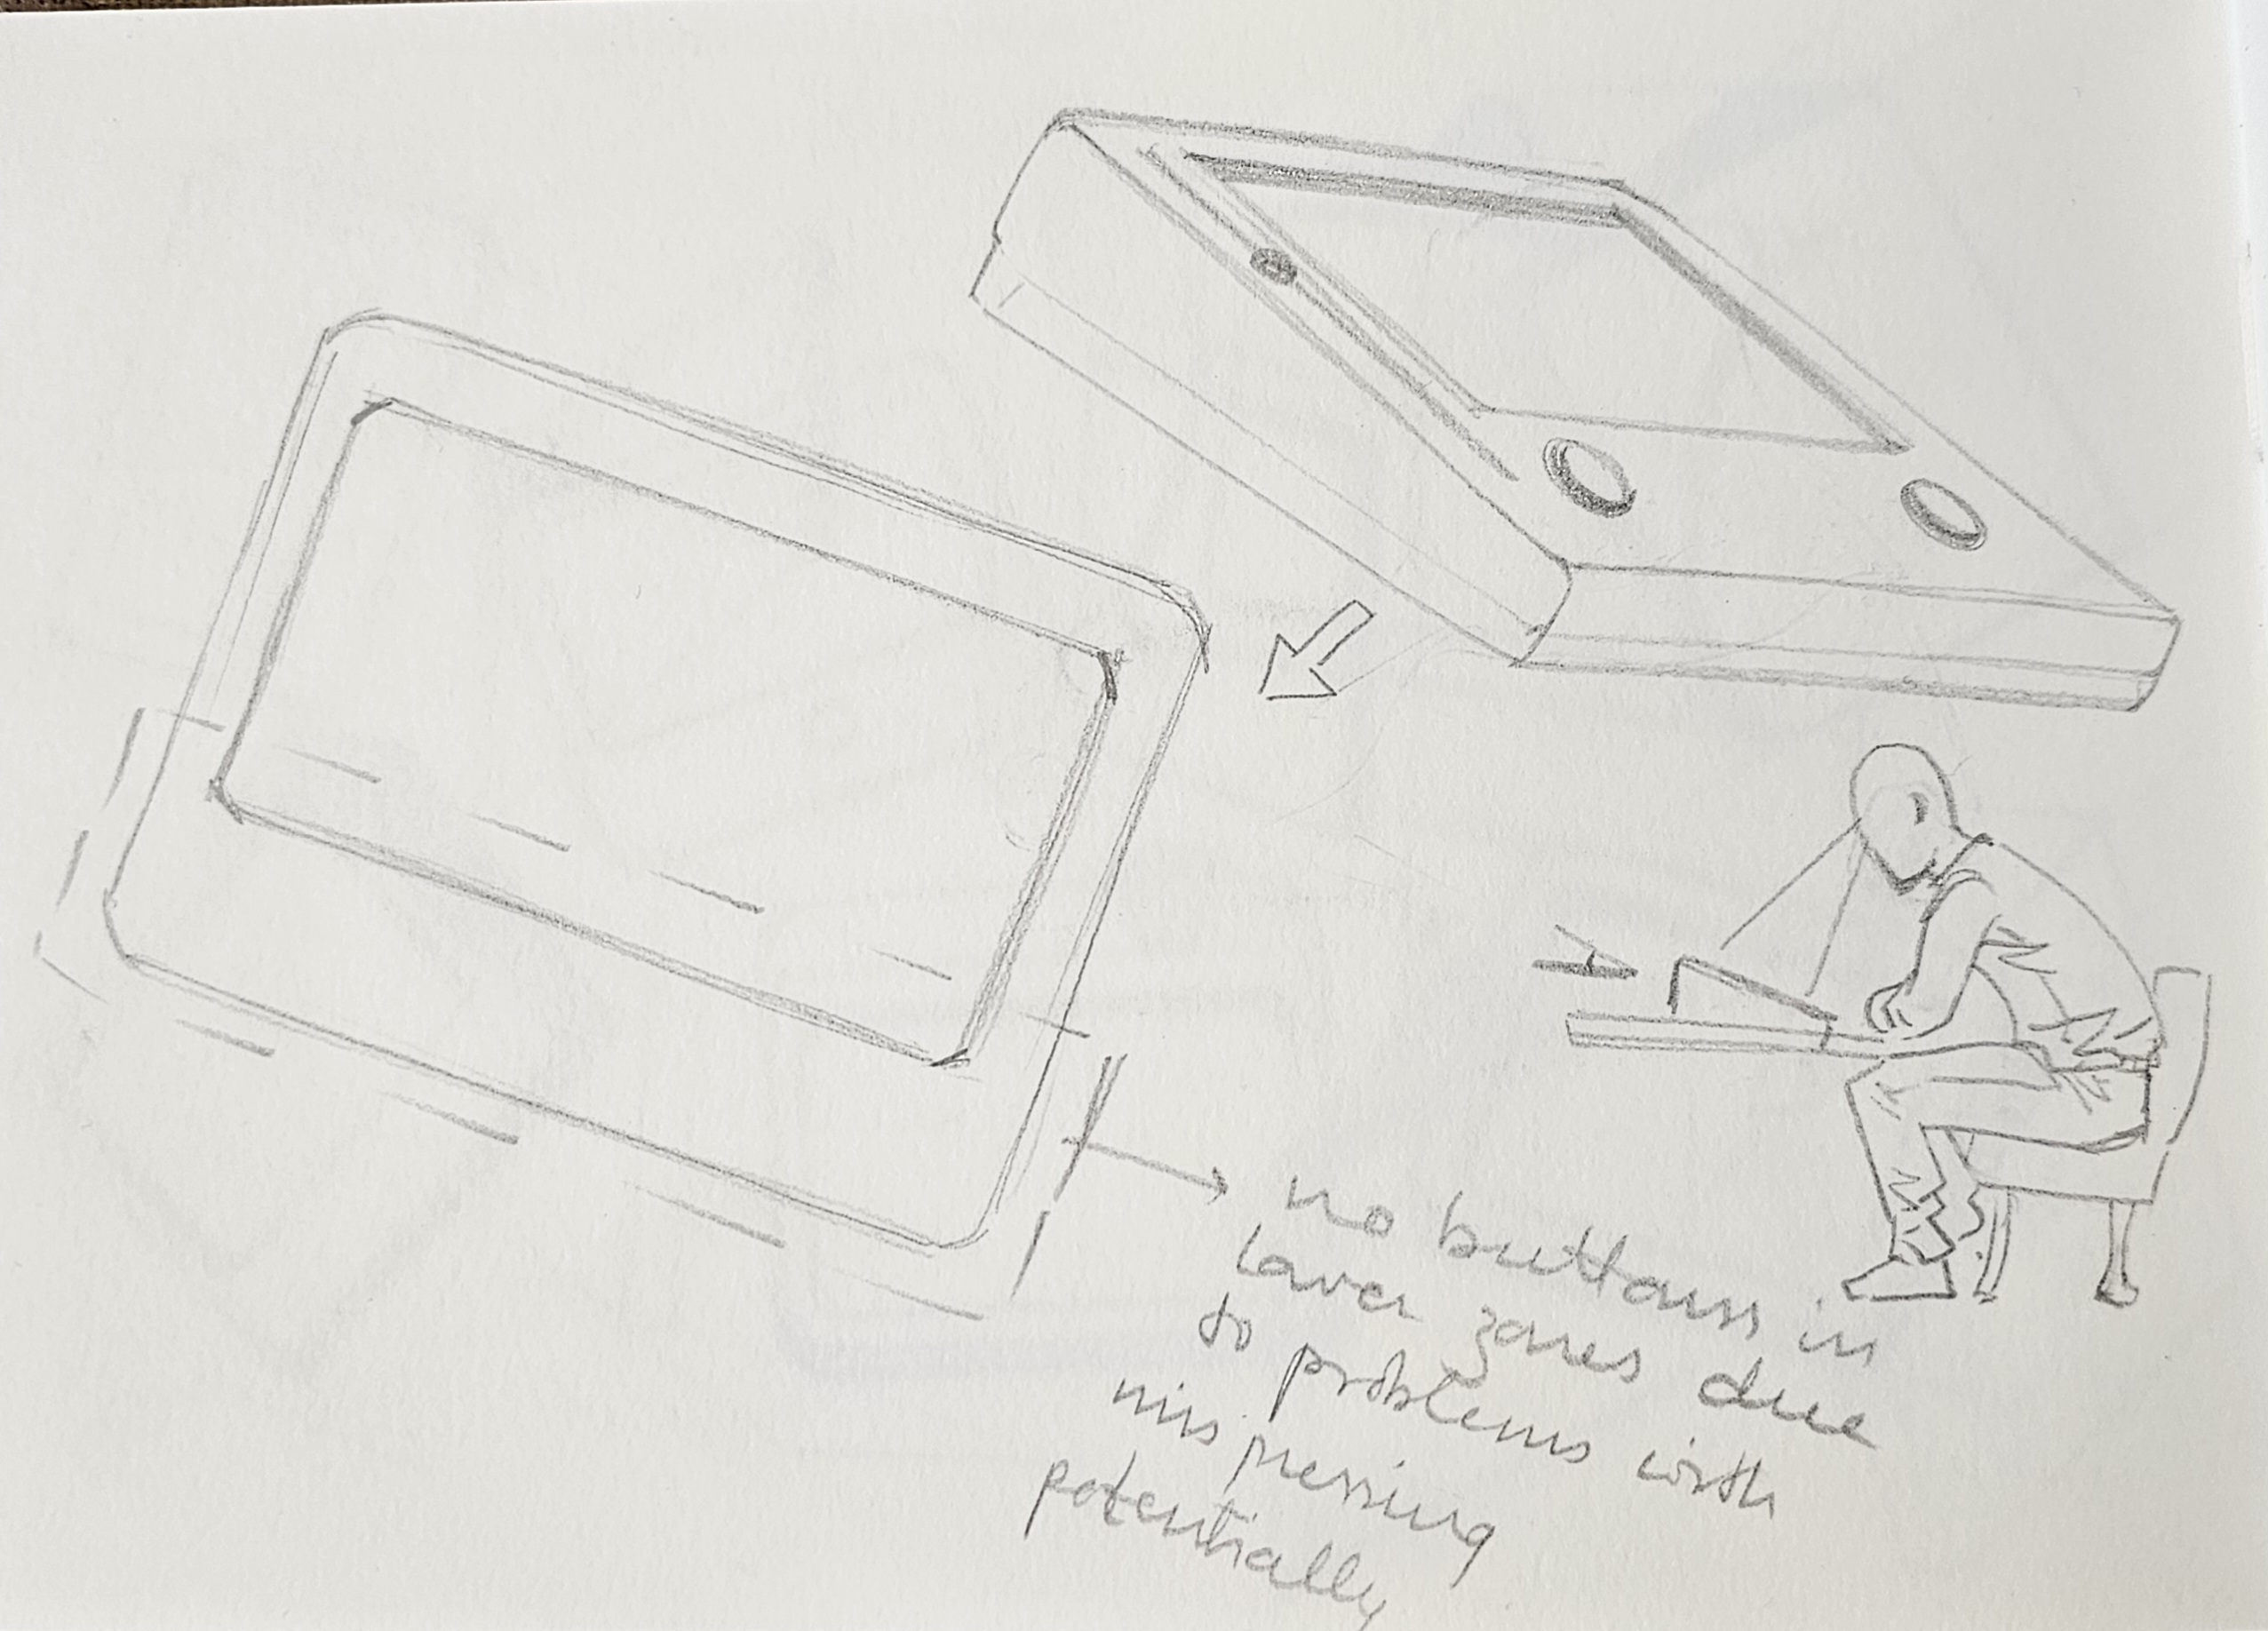 no buttons in
lower zones due
to problems with
mis pressing
potentially